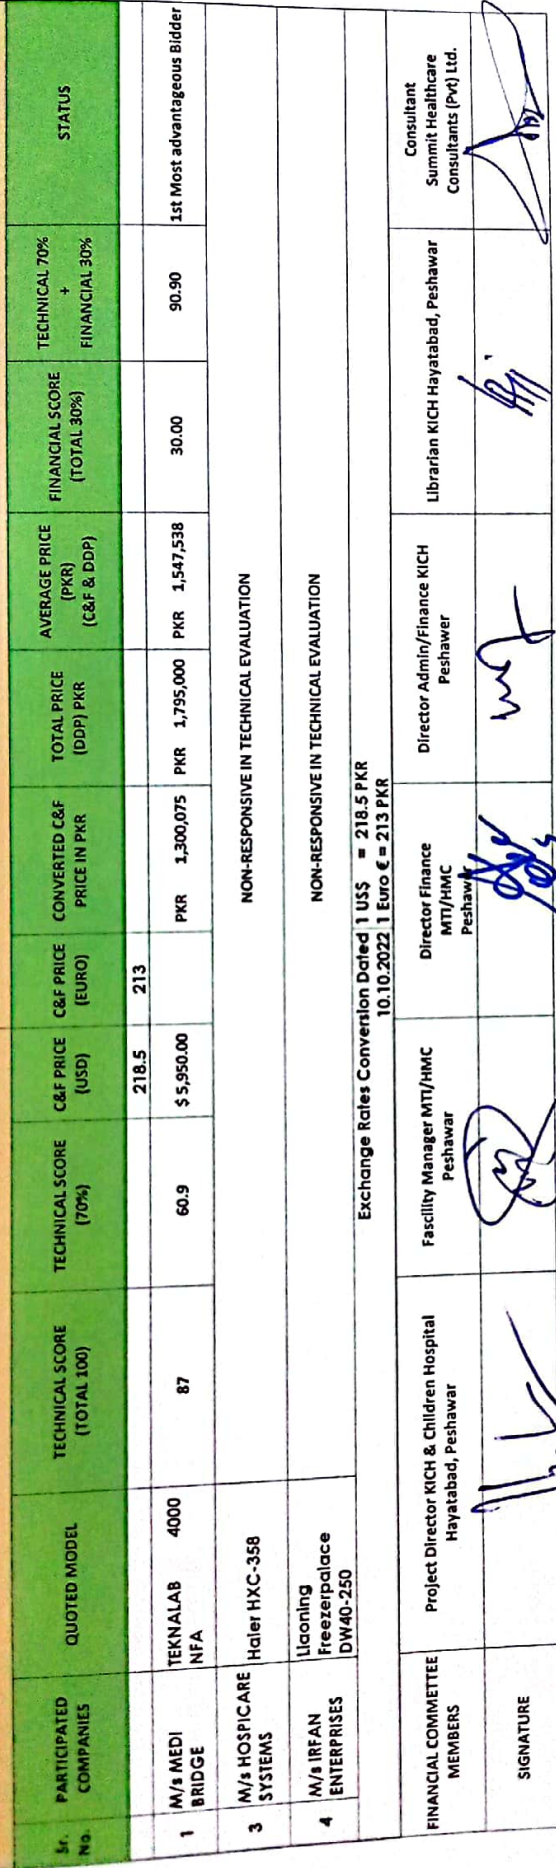 Sr. No. PARTICIPATED COMPANIES QUOTED MODEL TECHNICAL SCORE (TOTAL 100) TECHNICAL SCORE (70%) C&F PRICE (USD) C&F PRICE (EURO) CONVERTED C&F PRICE IN PKR TOTAL PRICE (DDP) PKR AVERAGE PRICE (PKR) (C&F & DDP) FINANCIAL SCORE (TOTAL 30%) TECHNICAL 70% + FINANCIAL 30% STATUS
218.5 213
1 M/s MEDI BRIDGE TEKNALAB 4000 NFA 87 60.9 $ 5,950.00 PKR 1,300,075 PKR 1,795,000 PKR 1,547,538 30.00 90.90 1st Most advantageous Bidder
3 M/s HOSPICARE SYSTEMS Haier HXC-358 NON-RESPONSIVE IN TECHNICAL EVALUATION
4 M/s IRFAN ENTERPRISES Liaoning Freezerpalace DW40-250 NON-RESPONSIVE IN TECHNICAL EVALUATION
Exchange Rates Conversion Dated 1 US$ = 218.5 PKR
10.10.2022 1 Euro € = 213 PKR
FINANCIAL COMMETTEE MEMBERS Project Director KICH & Children Hospital Hayatabad, Peshawar Fascility Manager MTI/HMC Peshawar Director Finance MTI/HMC Peshawar Director Admin/Finance KICH Peshawer Librarian KICH Hayatabad, Peshawar Consultant Summit Healthcare Consultants (Pvt) Ltd.
SIGNATURE